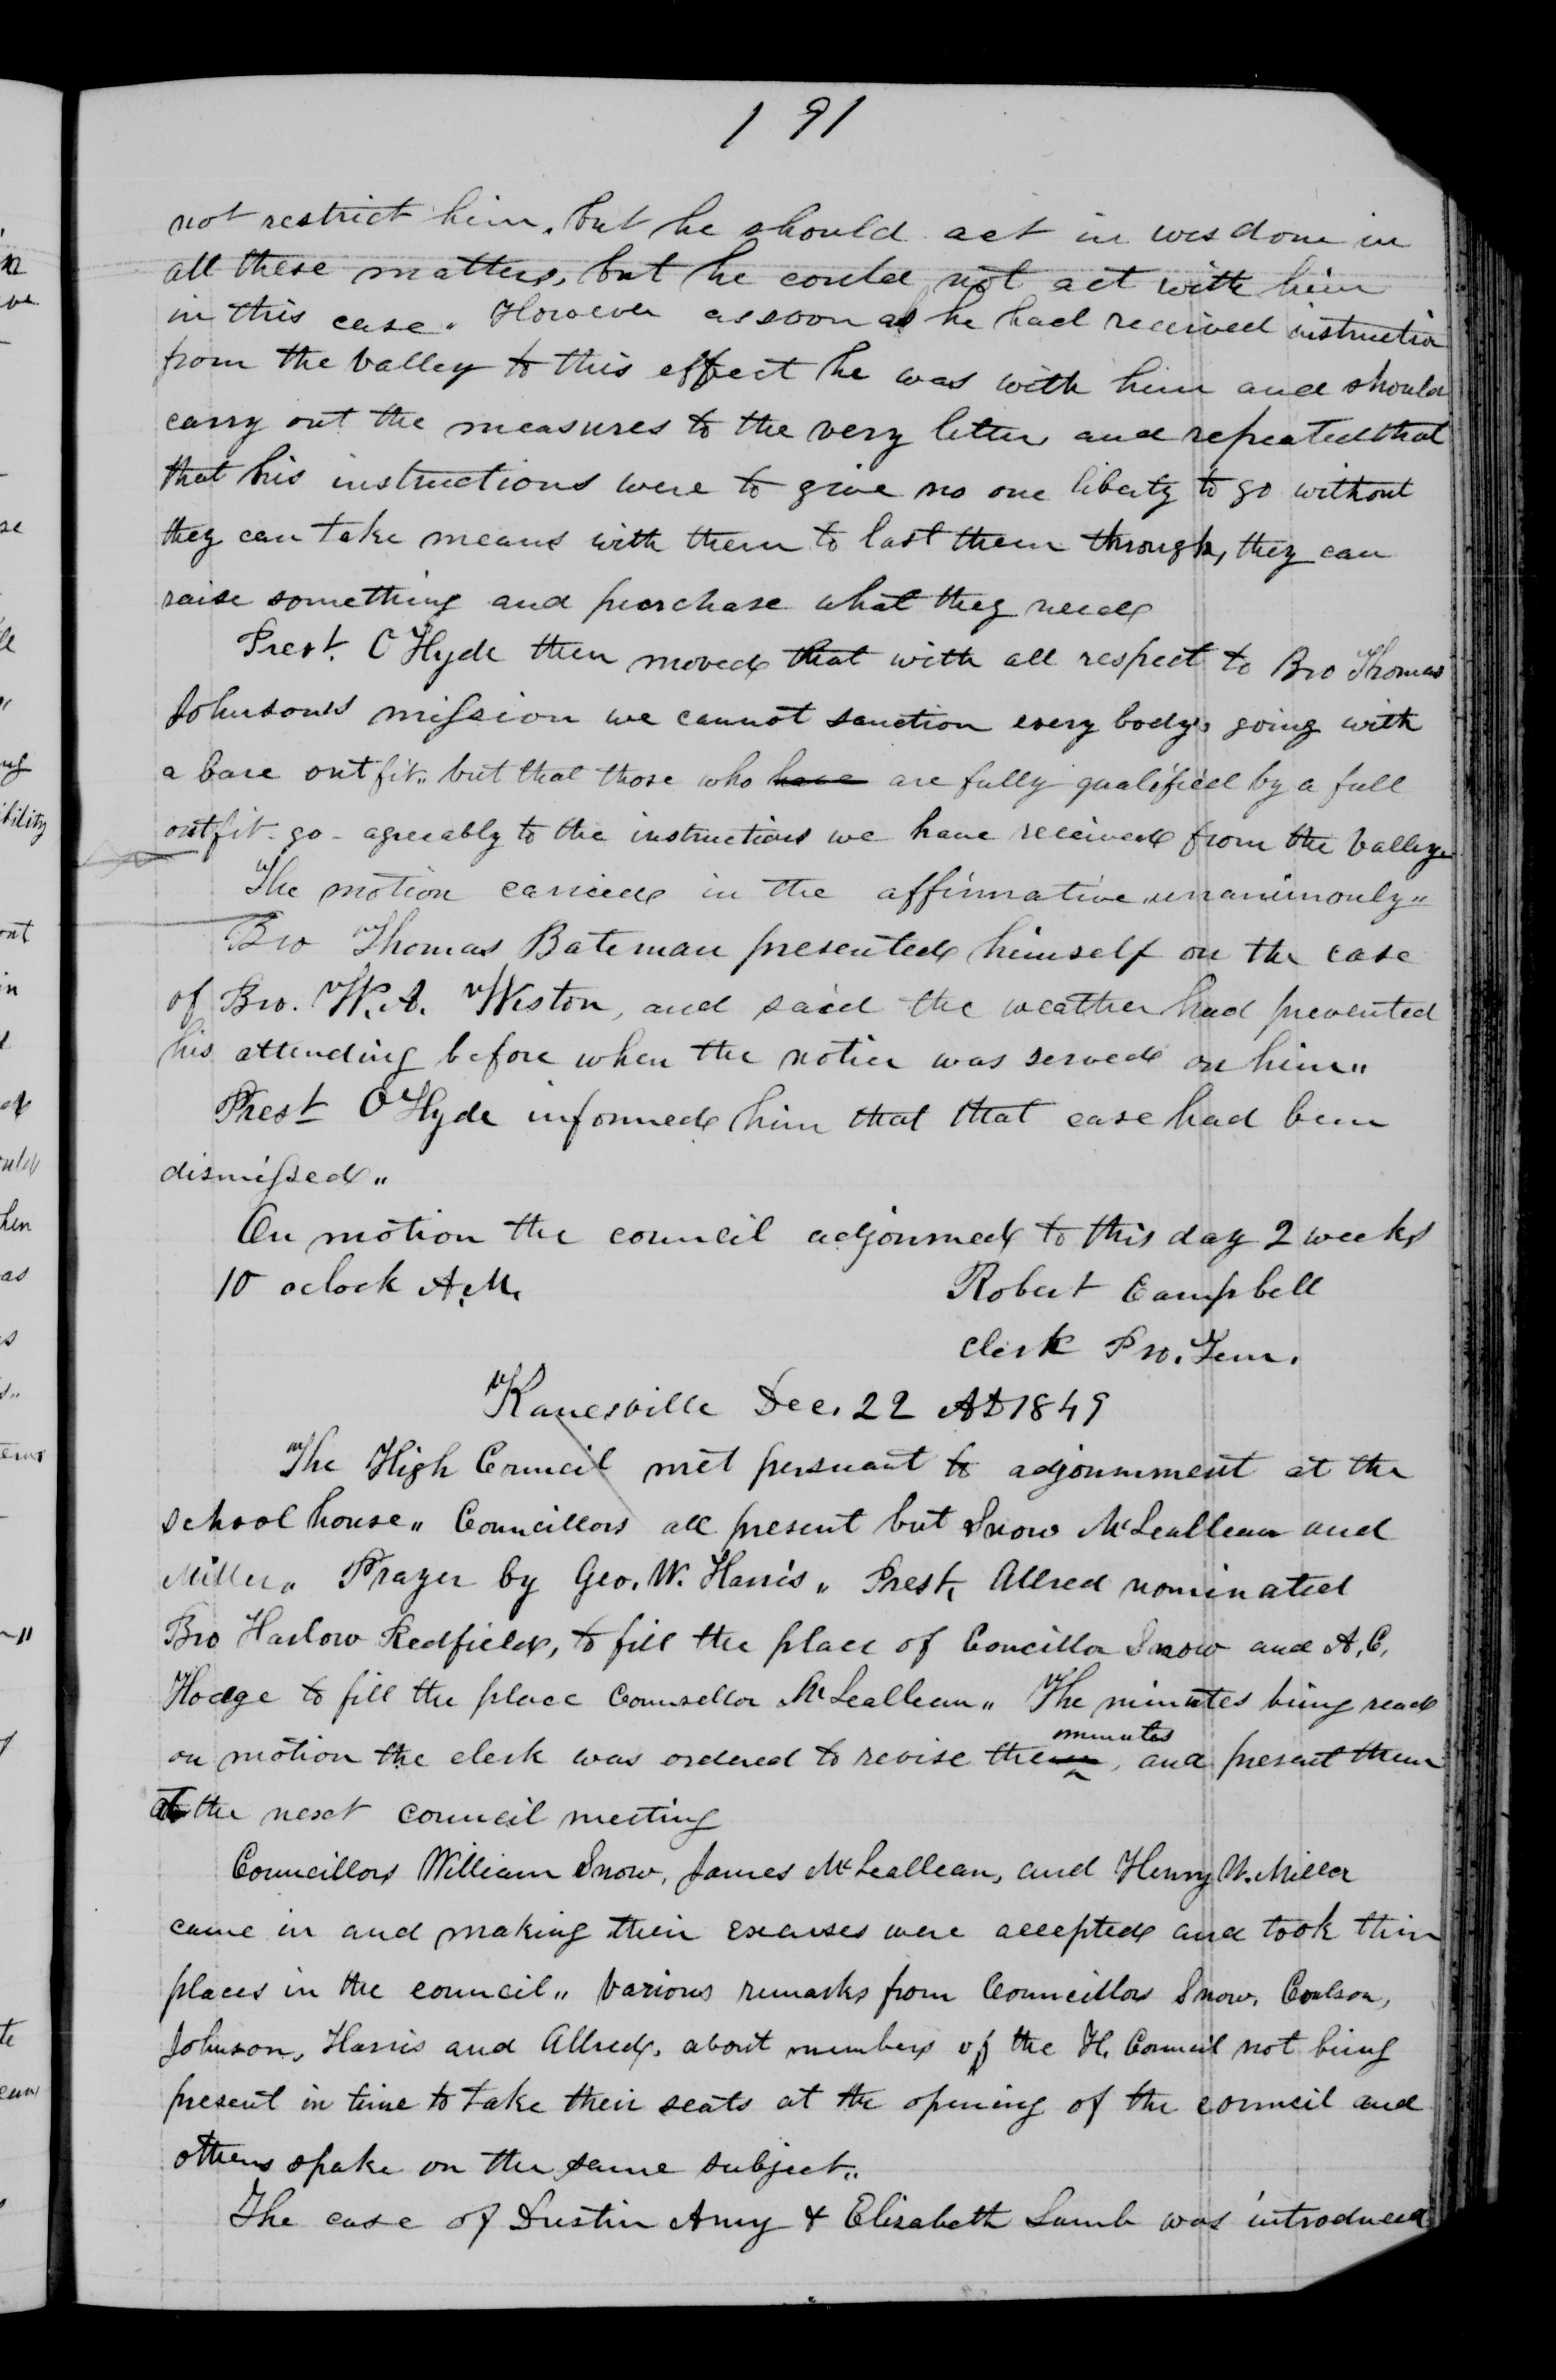 191
not restrict him, but he should act in wisdom in
all these matters, but he could not act with him
in this case. However as soon as he had received instructio
from the valley to this effect he was with him and should
carry out the measures to the very letter and repeated that
that his instructions were to give no one liberty to go without
they can take means with them to last them through, they can
raise something and purchase what they need
Prest. O Hyde then moved that with all respect to Bro Thomas
Johnson's mission we cannot sanction every body's going with
a bare outfit" but that those who have are fully qualified by a full
outfit - go - agreeably to the instructions we have received from the valley"
The motion carried in the affirmative unanimously"
Bro Thomas Bateman presented himself on the case
of Bro. W. A. Weston, and said the weather had prevented
his attending before when the notice was served on him"
Prest O Hyde informed him that that case had been
dismissed"
On motion the council adjourned to this day 2 weeks
10 oclock A.M.
Robert Campbell
Clerk Pro. Tem.
Kanesville Dec. 22 AD 1849
The High Council met persuant to adjournment at the
school house" Councillors all present but Snow McLeallean and
Miller" Prayer by Geo. W. Harris" Prest. Allred nominated
Bro Harlow Redfield, to fill the place of Concillor Snow and A. C.
Hodge to fill the place Counsellor McLeallean" The minutes being read
on motion the clerk was ordered to revise them minutes, and present them
at the next council meeting
Councillors William Snow, James McLeallean, and Henry W. Miller
came in and making their excuses were accepted and took their
places in the council" Various remarks from Councillors Snow, Coulson,
Johnson, Harris and Allred, about members of the H. Council not being
present in time to take their seats at the opening of the council and
others spake on the same subject"
The case of Dustin Amy & Elizabeth Lamb was introduced